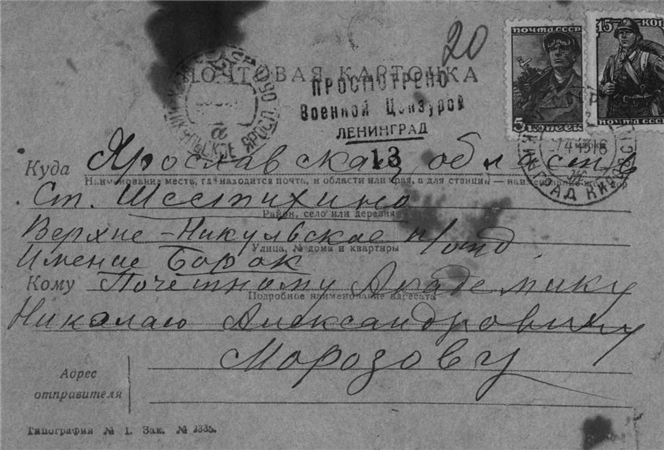 20
ПОЧТОВАЯ КАРТОЧКА
ПОЧТА СССР
15
5 КОПЕЕК
КОПЕЕК
ПРОСМОТРЕНО
Военной Цензурой
ЛЕНИНГРАД
13
НИКУЛЬСКОЕ ЯРОСЛ. ОБЛ.
ЛЕНИНГРАД
Куда Ярославская область
Наименование места, где находится почта, и области или края, а для станции —
ст. Шестихино
Район, село или деревня
Верхне-Никульское п/отд.
Улица, № дома и квартиры
Имение Борок
Кому Почетному Академику
Подробное наименование адресата
Николаю Александровичу
Морозову
Адрес
отправителя
Типография № 1. Зак. № 1335.